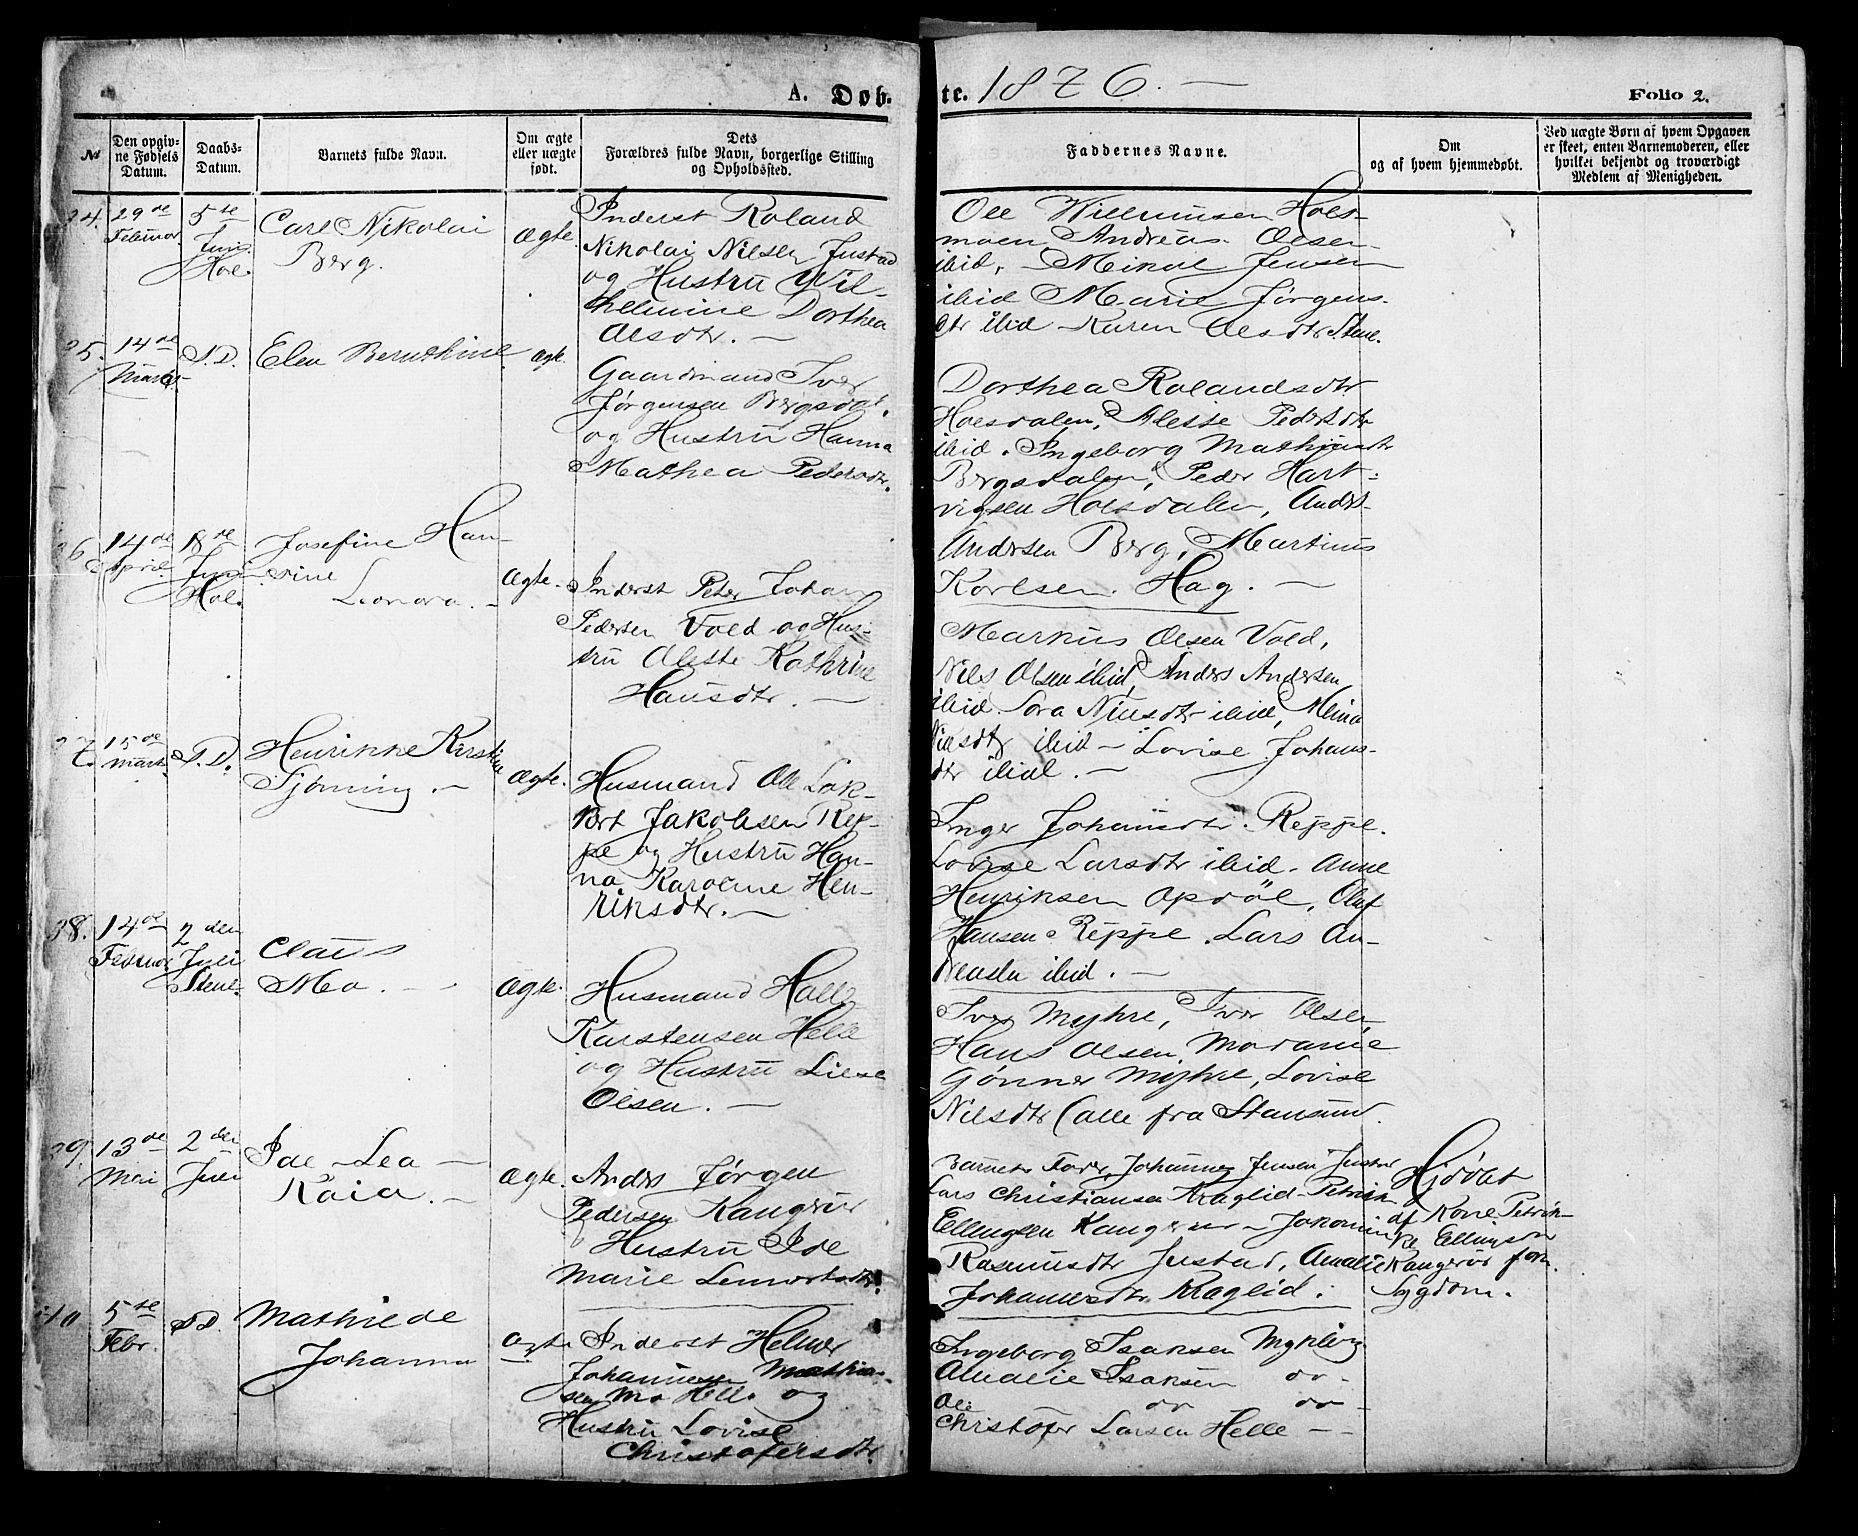 A. Døb-
te. 1876. —
Folio 2.
№
Den opgiv-
ne Fødsels
Datum.
Daabs-
Datum.
Barnets fulde Navn.
Om ægte
eller uægte
født.
Dets
Forældres fulde Navn, borgerlige Stilling
og Opholdssted.
Faddernes Navne.
Om
og af hvem hjemmedøbt.
Ved uægte Børn af hvem Opgaven
er skeet, enten Barnemoderen, eller
hvilket bekjendt og troværdigt
Medlem af Menigheden.
34. 29de
Februar
5te
Juni
Hol.
Carl Nikolai
Berg.
Ægte.
Inderst Roland
Nikolai Nilsen Justad
og Hustru Wil-
helmine Dorthea
Olsdtr. —
Ole Willumsen Hols-
moen, Andreas Olsen
ibid, Mikal Jensen
ibid Marie Jørgens-
dtr ibid Karen Olsdtr Stene.
35. 14de
Marts
S. D.
Elen Bernthine
Ægte.
Gaardmand Iver
Jørgensen Bergsdal.
og Hustru Hanna
Mathea Pedersdtr.
Dorthea Rolandsdtr
Holsdalen, Alette Pedersdtr
ibid. Ingeborg Mathiasdtr
Bergsdalen, Peder Hart-
vigsen Holsdalen, Anders
Andersen Berg, Martinus
Karlsen Hag. —
36 14de
April
18de
Juni
Hol.
Josefine Han-
sine
Leonora. —
Ægte.
Inderst Peter Johan
Pedersen Vold og Hus-
tru Alette Kathrine
Hansdtr. —
Markus Olsen Vold,
Nils Olsen ibid, Anders Andersen
ibid. Sara Nilsdtr ibid, Meina
Nilsdtr ibid — Lovise Johans-
dtr ibid. —
37. 15de
Marts
S. D.
Henrikke Kirstine
Tjønning. —
Ægte.
Husmand Ole Lok-
Bert Jakobsen Rep-
pe og Hustru Han-
na Karoline Hen-
riksdtr. —
Inger Johansdtr. Reppe.
Lovise Larsdtr ibid. Anne
Henriksen Opdøl, Olaf
Hansen Reppe. Lars An-
dreasen ibid. —
38. 14de
Februar
2den
Juli
Stene.
Claus
Meo. —
Ægte.
Husmand Halle
Karstensen Helle
og Hustru Liese
Olsen. —
Iver Myhre, Iver Olsen
Hans Olsen, Moranie
Gønner Myhre, Lovise
Nilsdtr Calle fra Stamsund.
39. 13de
Mai
2den
Juli
Ide Lea —
Kaia. —
Ægte.
Anders Jørgen
Pedersen Kangerur
Hustru Ide
Marie Lennertsdtr.
Barnets Fader, Johannes Jensen Justad
Lars Christiansen Kraglid — Petrik
Ellingsen Kangerur — Jakomine
Rasmusdtr Justad, Amalie
Johannesdtr Kraglid.
Hjdøbt
af Kone Petrik-
ke Ellingsdtr
Kangerur form.
Sygdom.
40 5te
Febr.
S. D.
Mathilde
Johanna
Ægte
Inderst Helmer
Johannesen Mathia-
sen Mo Helle og
Hustru Lovise
Christofersdtr.
Ingeborg Isaksen Mykling
Amalie Isaksen do -
Ole do do -
Christofer Larsen Helle - -